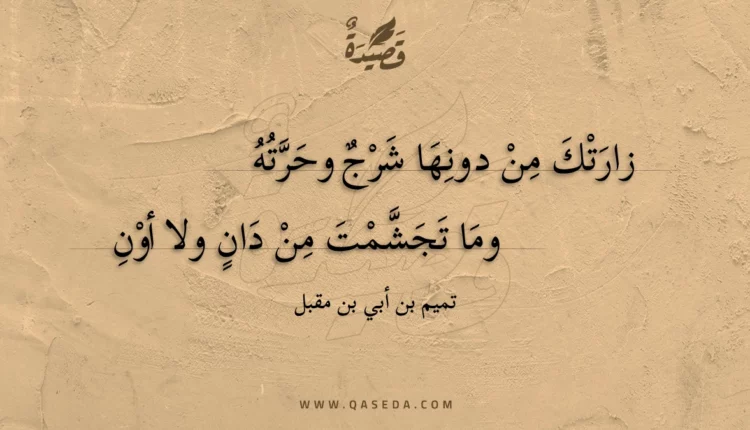 قَصِيْدَةٌ
زارَتْكَ مِنْ دونِهَا شَرْجٌ وحَرَّتُهُ
ومَا تَجَشَّمْتَ مِنْ دَانٍ ولا أوْنِ
تميم بن أبي بن مقبل
WWW.QASEDA.COM